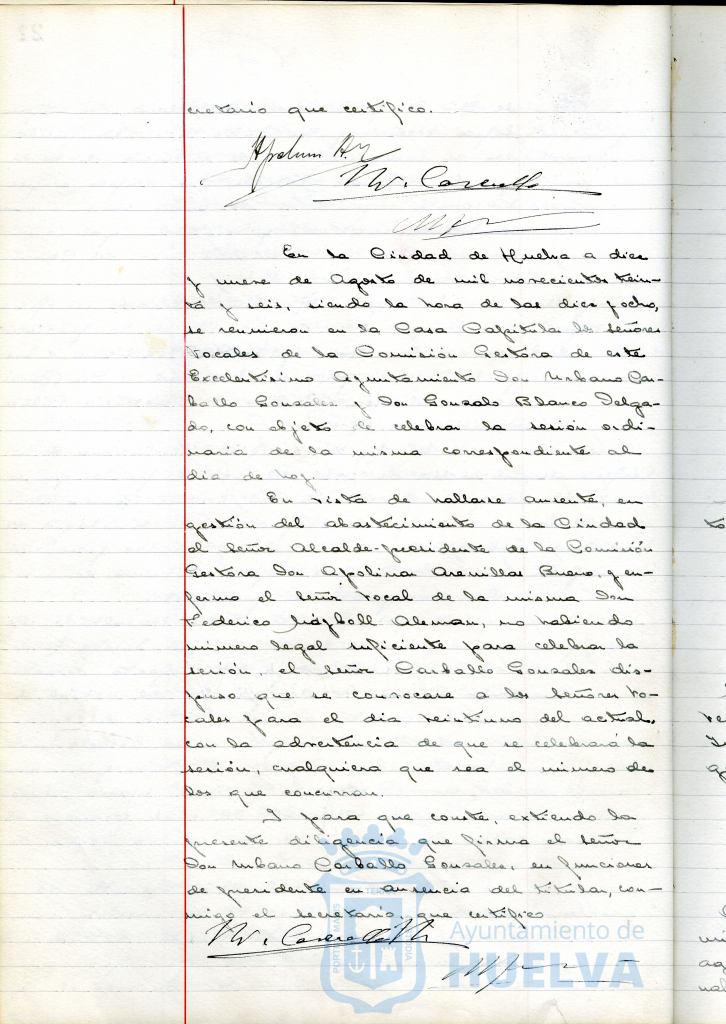 cretario que certifico.
En la Ciudad de Huelva a diez
y nueve de Agosto de mil novecientos trein-
ta y seis, siendo la hora de las diez y ocho,
se reunieron en la Casa Capitular los señores
Vocales de la Comisión Gestora de este
Excelentísimo Ayuntamiento Don Urbano Car-
ballo Gonzales y Don Gonzalo Blanco Delga-
do, con objeto de celebrar la sesión ordi-
naria de la misma correspondiente al
día de hoy.
En vista de hallarse ausente, en
gestión del abastecimiento de la Ciudad
el Señor Alcalde-presidente de la Comisión
Gestora Don Apolinar Arenillas Bueno, y en-
fermo el Señor Vocal de la misma Don
Federico Aleman, no habiendo
número legal suficiente para celebrar la
sesión, el señor Carballo Gonzales dis-
puso que se convocase a los Señores Vo-
cales para el día veintiuno del actual,
con la advertencia de que se celebrará la
sesión, cualquiera que sea el número de
los que concurran.
Y para que conste, extiendo la
presente diligencia que firma el señor
Don Urbano Carballo Gonzales, en funciones
de presidente en ausencia del titular, con-
migo el secretario, que certifico
Ayuntamiento de
HUELVA